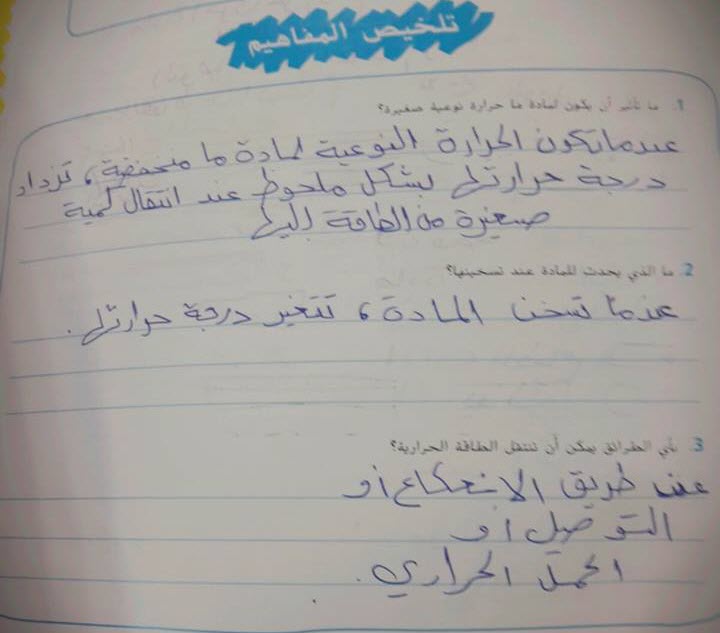 تلخيص المفاهيم
1. ما تأثير أن يكون لمادة ما حرارة نوعية صغيرة؟
عندما تكون الحرارة النوعية لمادة ما منخفضة، تزداد
درجة حرارتها بشكل ملحوظ عند انتقال كمية
صغيرة من الطاقة إليها
2. ما الذي يحدث للمادة عند تسخينها؟
عندما تسخن المادة، تتغير درجة حرارتها.
3. بأي الطرائق يمكن أن تنتقل الطاقة الحرارية؟
عن طريق الانعكاع أو
التوصيل او
الحمل الحراري.